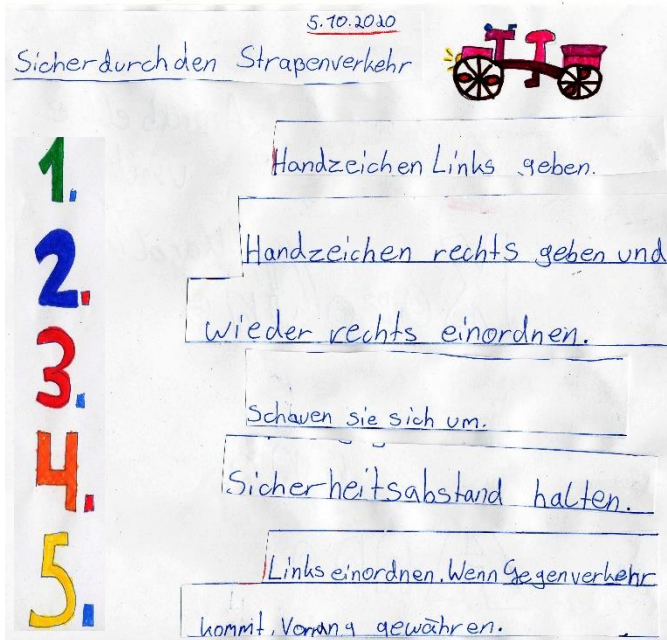 5.10.2020
Sicher durch den Straßenverkehr
1. Handzeichen Links geben.
2. Handzeichen rechts geben und
wieder rechts einordnen.
3. Schauen sie sich um.
4. Sicherheitsabstand halten.
5. Links einordnen. Wenn Gegenverkehr
kommt, Vorrang gewähren.